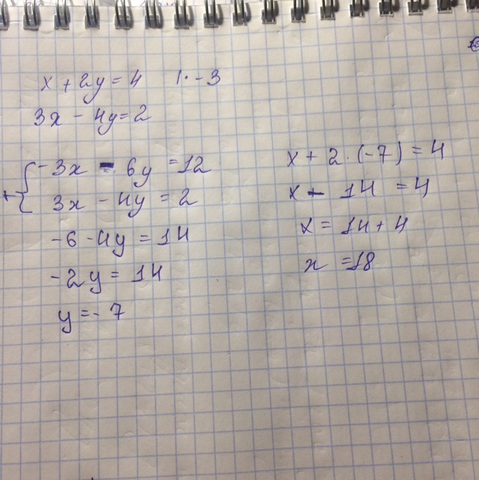 x + 2y = 4 | · -3
3x - 4y = 2
+ { -3x - 6y = 12
3x - 4y = 2
-6 - 4y = 14
-2y = 14
y = - 7
x + 2 · (-7) = 4
x - 14 = 4
x = 14 + 4
x = 18